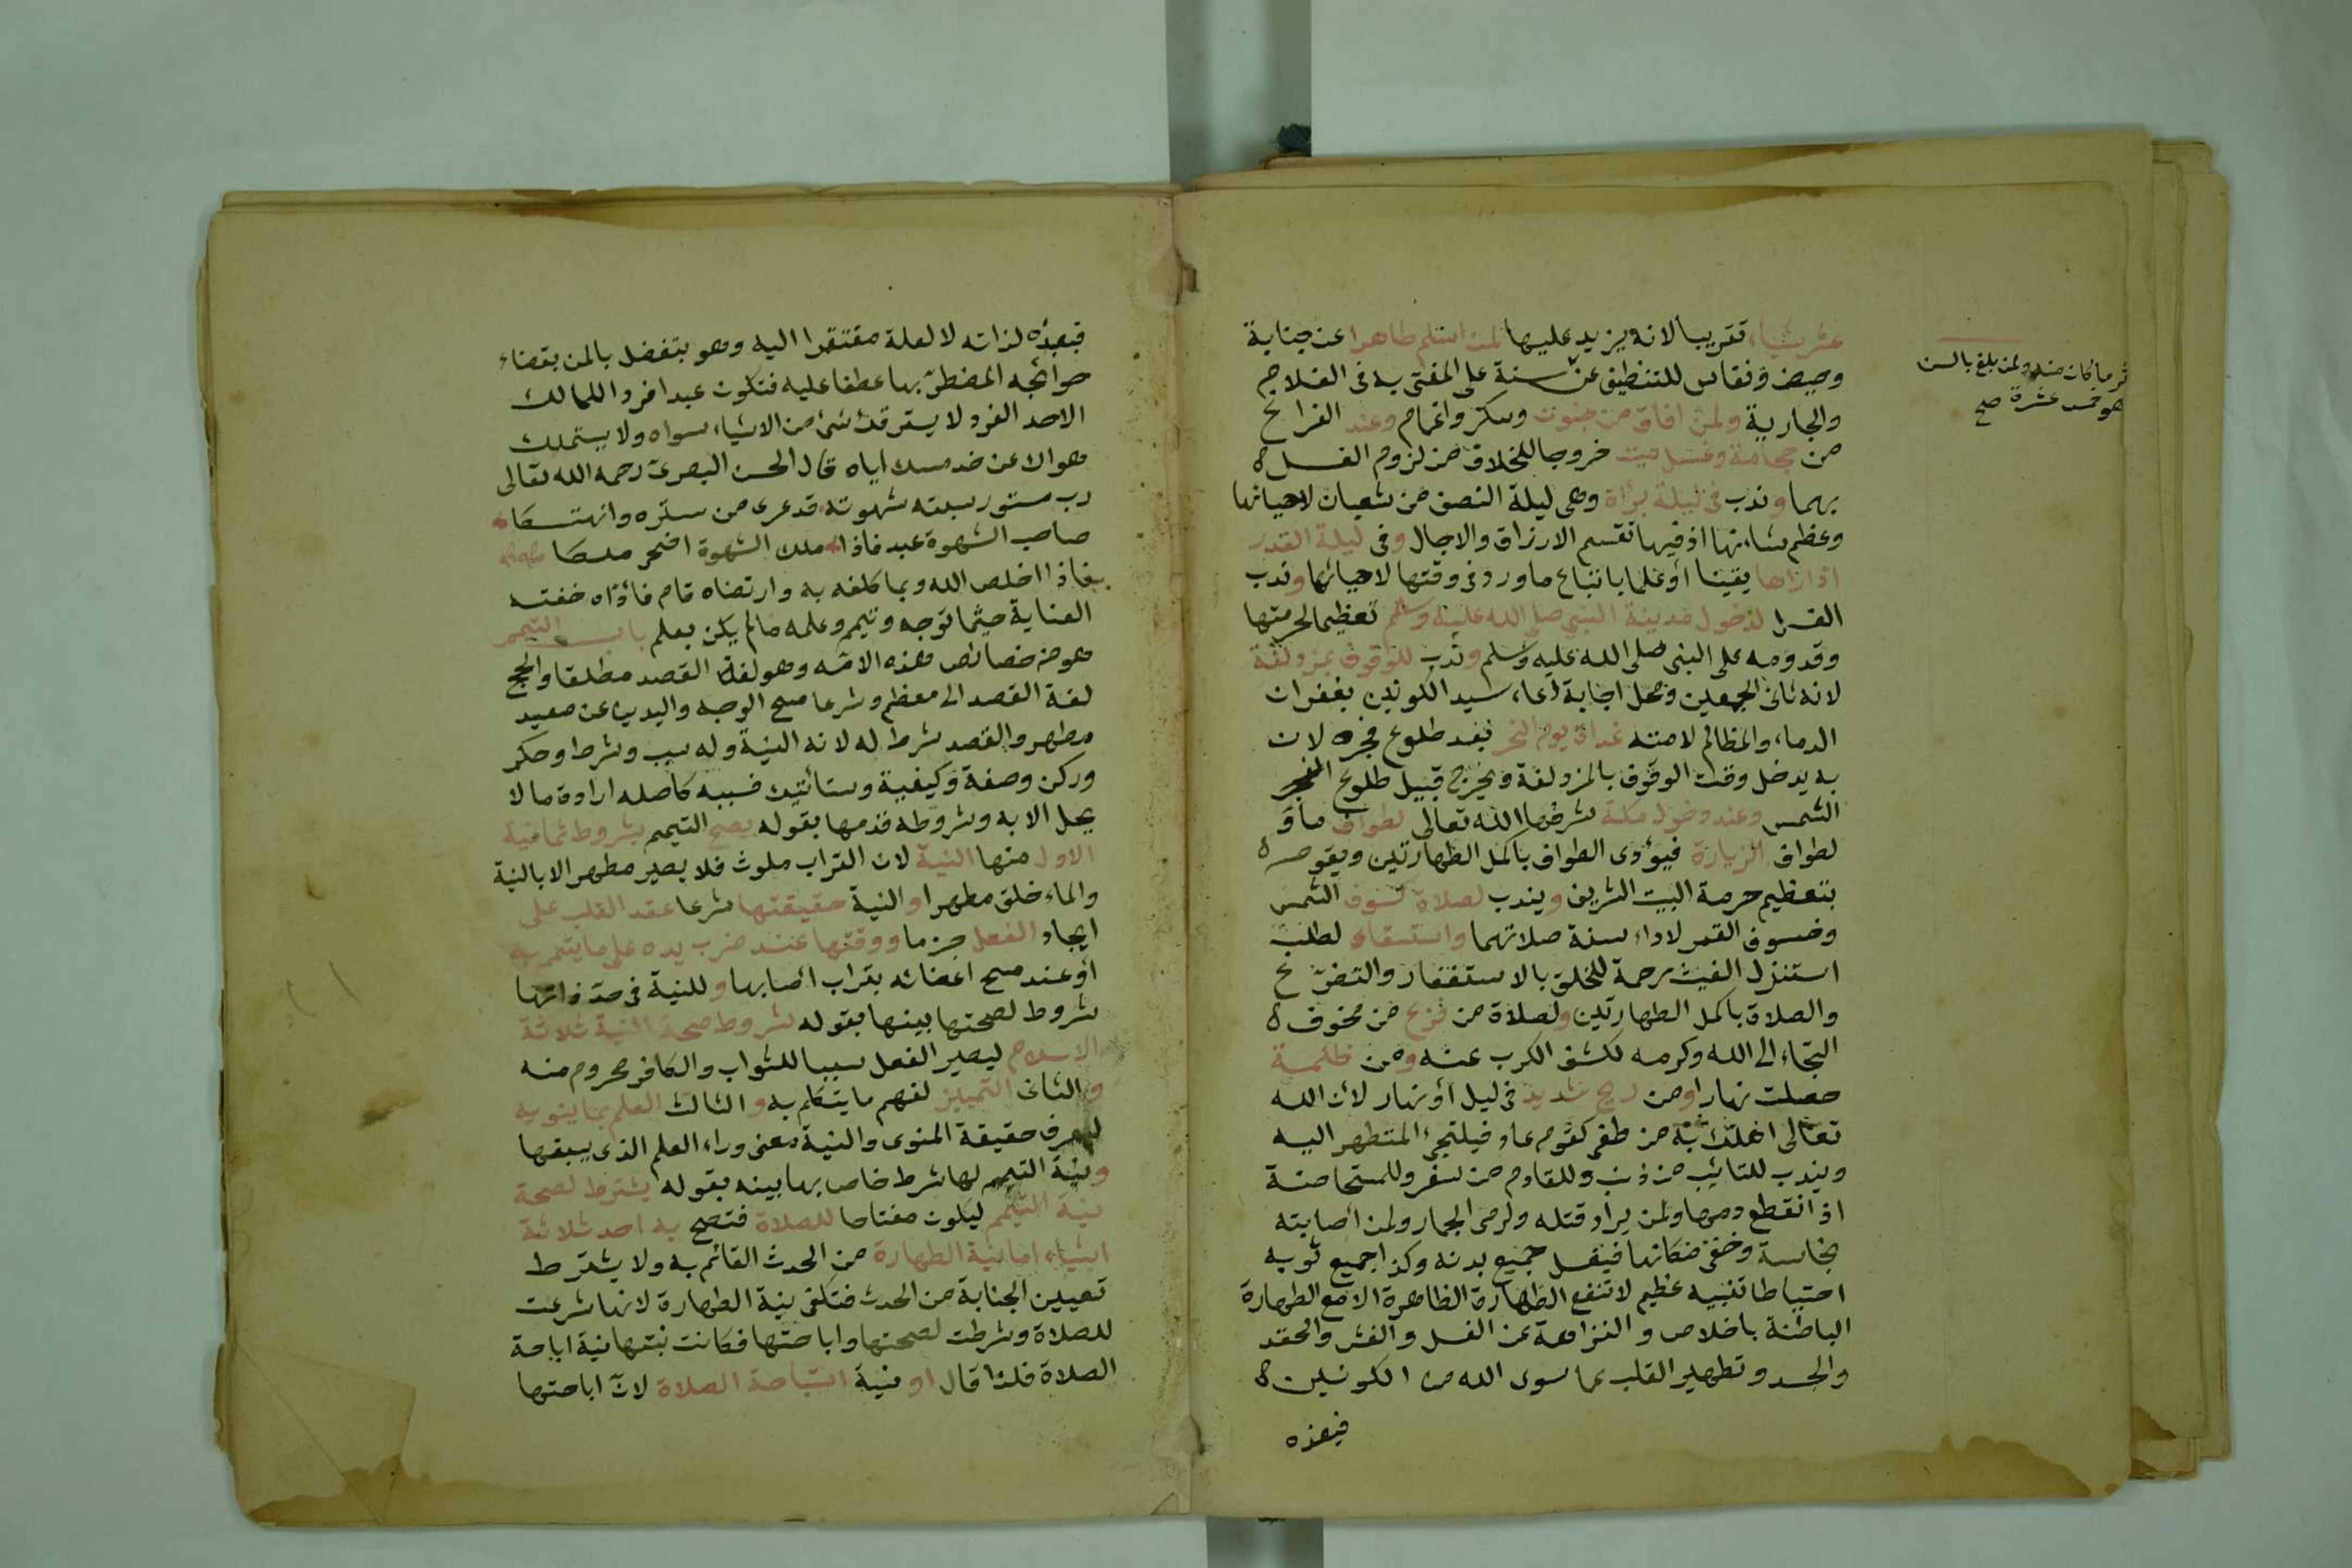 عشر شيئا، تقريبا لانه يزيد عليها لمن اسلم طاهرا عن جنابة
وحيض ونفاس للتنظيف عن سنة على المفتى به فى الغلام
والجارية ولمن افاق من جنون وسكر واغماء وعند الفراغ
من حجامة وغسل ميت خروجا للخلاف من لزوم الغسل
بهما وندب فى ليلة براة وهى ليلة النصف من شعبان لاحيائها
وعظم شانها اذ فيها تقسم الارزاق والاجال وفى ليلة القدر
اذا راها يقينا أو علما باتباع ما ورد فى وقتها لاحيائها وندب
الغسل لدخول مدينة النبى صلى الله عليه وسلم تعظيما لحرمتها
وقدومه على النبى صلى الله عليه وسلم وندب للوقوف بمزدلفة
لانه ثانى الجمعين ومحل اجابة دعاء سيد الكونين بغفران
الدماء والمظالم لامته غداة يوم النحر بعد طلوع فجره لان
به يدخل وقت الوقوف بالمزدلفة ويخرج قبيل طلوع
الشمس وعند دخول مكة شرفها الله تعالى لطواف ما و
لطواف الزيارة فيؤدى الطواف باكمل الطهارتين ويقوم
بتعظيم حرمة البيت الشريف ويندب لصلاة كسوف الشمس
وخسوف القمر لاداء سنة صلاتهما واستسقاء لطلب
استنزل الغيث رحمة للخلق بالاستغفار والتضرع
والصلاة باكمل الطهارتين ولصلاة من فزع من مخوف
التجاء الى الله وكرمه لكشف الكرب عنه ومن ظلمة
حصلت نهارا ومن ريح شديد فى ليل أو نهار لان الله
تعالى اهلك به من طغى كقوم عاد فيلتجئ المتطهر اليه
ويندب للتائب من ذنب وللقادم من سفر وللمستحاضة
اذ انقطع دمها ولمن يراد قتله ولرمى الجمار ولمن أصابته
نجاسة وخفى مكانها فيغسل جميع بدنه وكذا جميع ثوبه
احتياطا تنبيه عظيم لا تنفع الطهارة الظاهرة الا مع الطهارة
الباطنة باخلاص والنزاهة عن الغل والغش والحقد
والحسد وتطهير القلب عما سوى الله من الكونين
فيعبده
ثم ما كان منه ولمن بلغ بالسن
هو خمس عشرة صح
فيعبده لذاته لا لعلة مفتقرا اليه وهو يتفضل بالمن بقضاء
حوائجه المضطر بها عطفا عليه فتكون عبدا فردا للمالك
الاحد الفرد لا يسترقك شئ من الاشياء سواه ولا يستملك
هواك عن خدمتك اياه قال الحسن البصرى رحمه الله تعالى
رب مستور سبته شهوته قد عرى من ستره وانهتكا
صاحب الشهوة عبد فاذا ملك الشهوة اضحى ملكا
فاذا اخلص لله وبما كلفه به وارتضاه قام فاداه حفته
العناية حيثما توجه وتيمم وعلمه ما لم يكن يعلم باب التيمم
هو من خصائص هذه الامة وهو لغة القصد مطلقا والحج
لغة القصد الى معظم وشرعا مسح الوجه واليدين عن صعيد
مطهر والقصد شرط له لانه النية وله سبب وشرط وحكم
وركن وصفة وكيفية وستأتيك فسببه كاصله ارادة ما لا
يحل الا به وشروطه قدمها بقوله يصح التيمم بشروط ثمانية
الاول منها النية لان التراب ملوث فلا يصير مطهرا الا بالنية
والماء خلق مطهرا والنية حقيقتها شرعا عقد القلب على
ايجاد الفعل جزما ووقتها عند ضرب يده على ما يتيمم به
أو عند مسح اعضائه بتراب أصابها وللنية فى حد ذاتها
شروط لصحتها بينها بقوله شروط صحة النية ثلاثة
الاسلام ليصير الفعل سببا للثواب والكافر محروم منه
والثانى التمييز لفهم ما يتكلم به والثالث العلم بما ينويه
ليعرف حقيقة المنوى والنية معنى وراء العلم الذى يسبقها
ونية التيمم لها شرط خاص بها بينه بقوله يشترط لصحة
نية التيمم ليكون مفتاحا للصلاة فتصح به احد ثلاثة
اشياء اما نية الطهارة من الحدث القائم به ولا يشترط
تعيين الجنابة من الحدث فتكفى نية الطهارة لانها شرعت
للصلاة وشرطت لصحتها واباحتها فكانت نيتها نية اباحة
الصلاة فلذا قال او نية استباحة الصلاة لان اباحتها